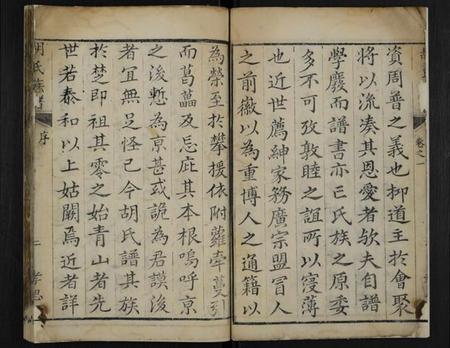 資周普之義也抑道主於會聚
將以流奏其恩愛者歟夫自譜
學廢而譜書亦亡氏族之原委
多不可攷敦睦之誼所以寖薄
也近世薦紳家務廣宗盟冒人
之前徽以為重博人之通籍以
為榮至於攀援依附蘿牽蔓引
而葛藟反忘庇其本根嗚呼京
之後慙為京甚或詭為君謨後
者宜無足怪已今胡氏譜其族
於楚即祖其零之始青山者先
世若泰和以上姑闕焉近者詳
胡氏族譜
序
二
孝思
卷之一